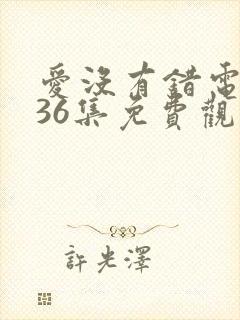 愛沒有錯電
36集免費觀
許光澤